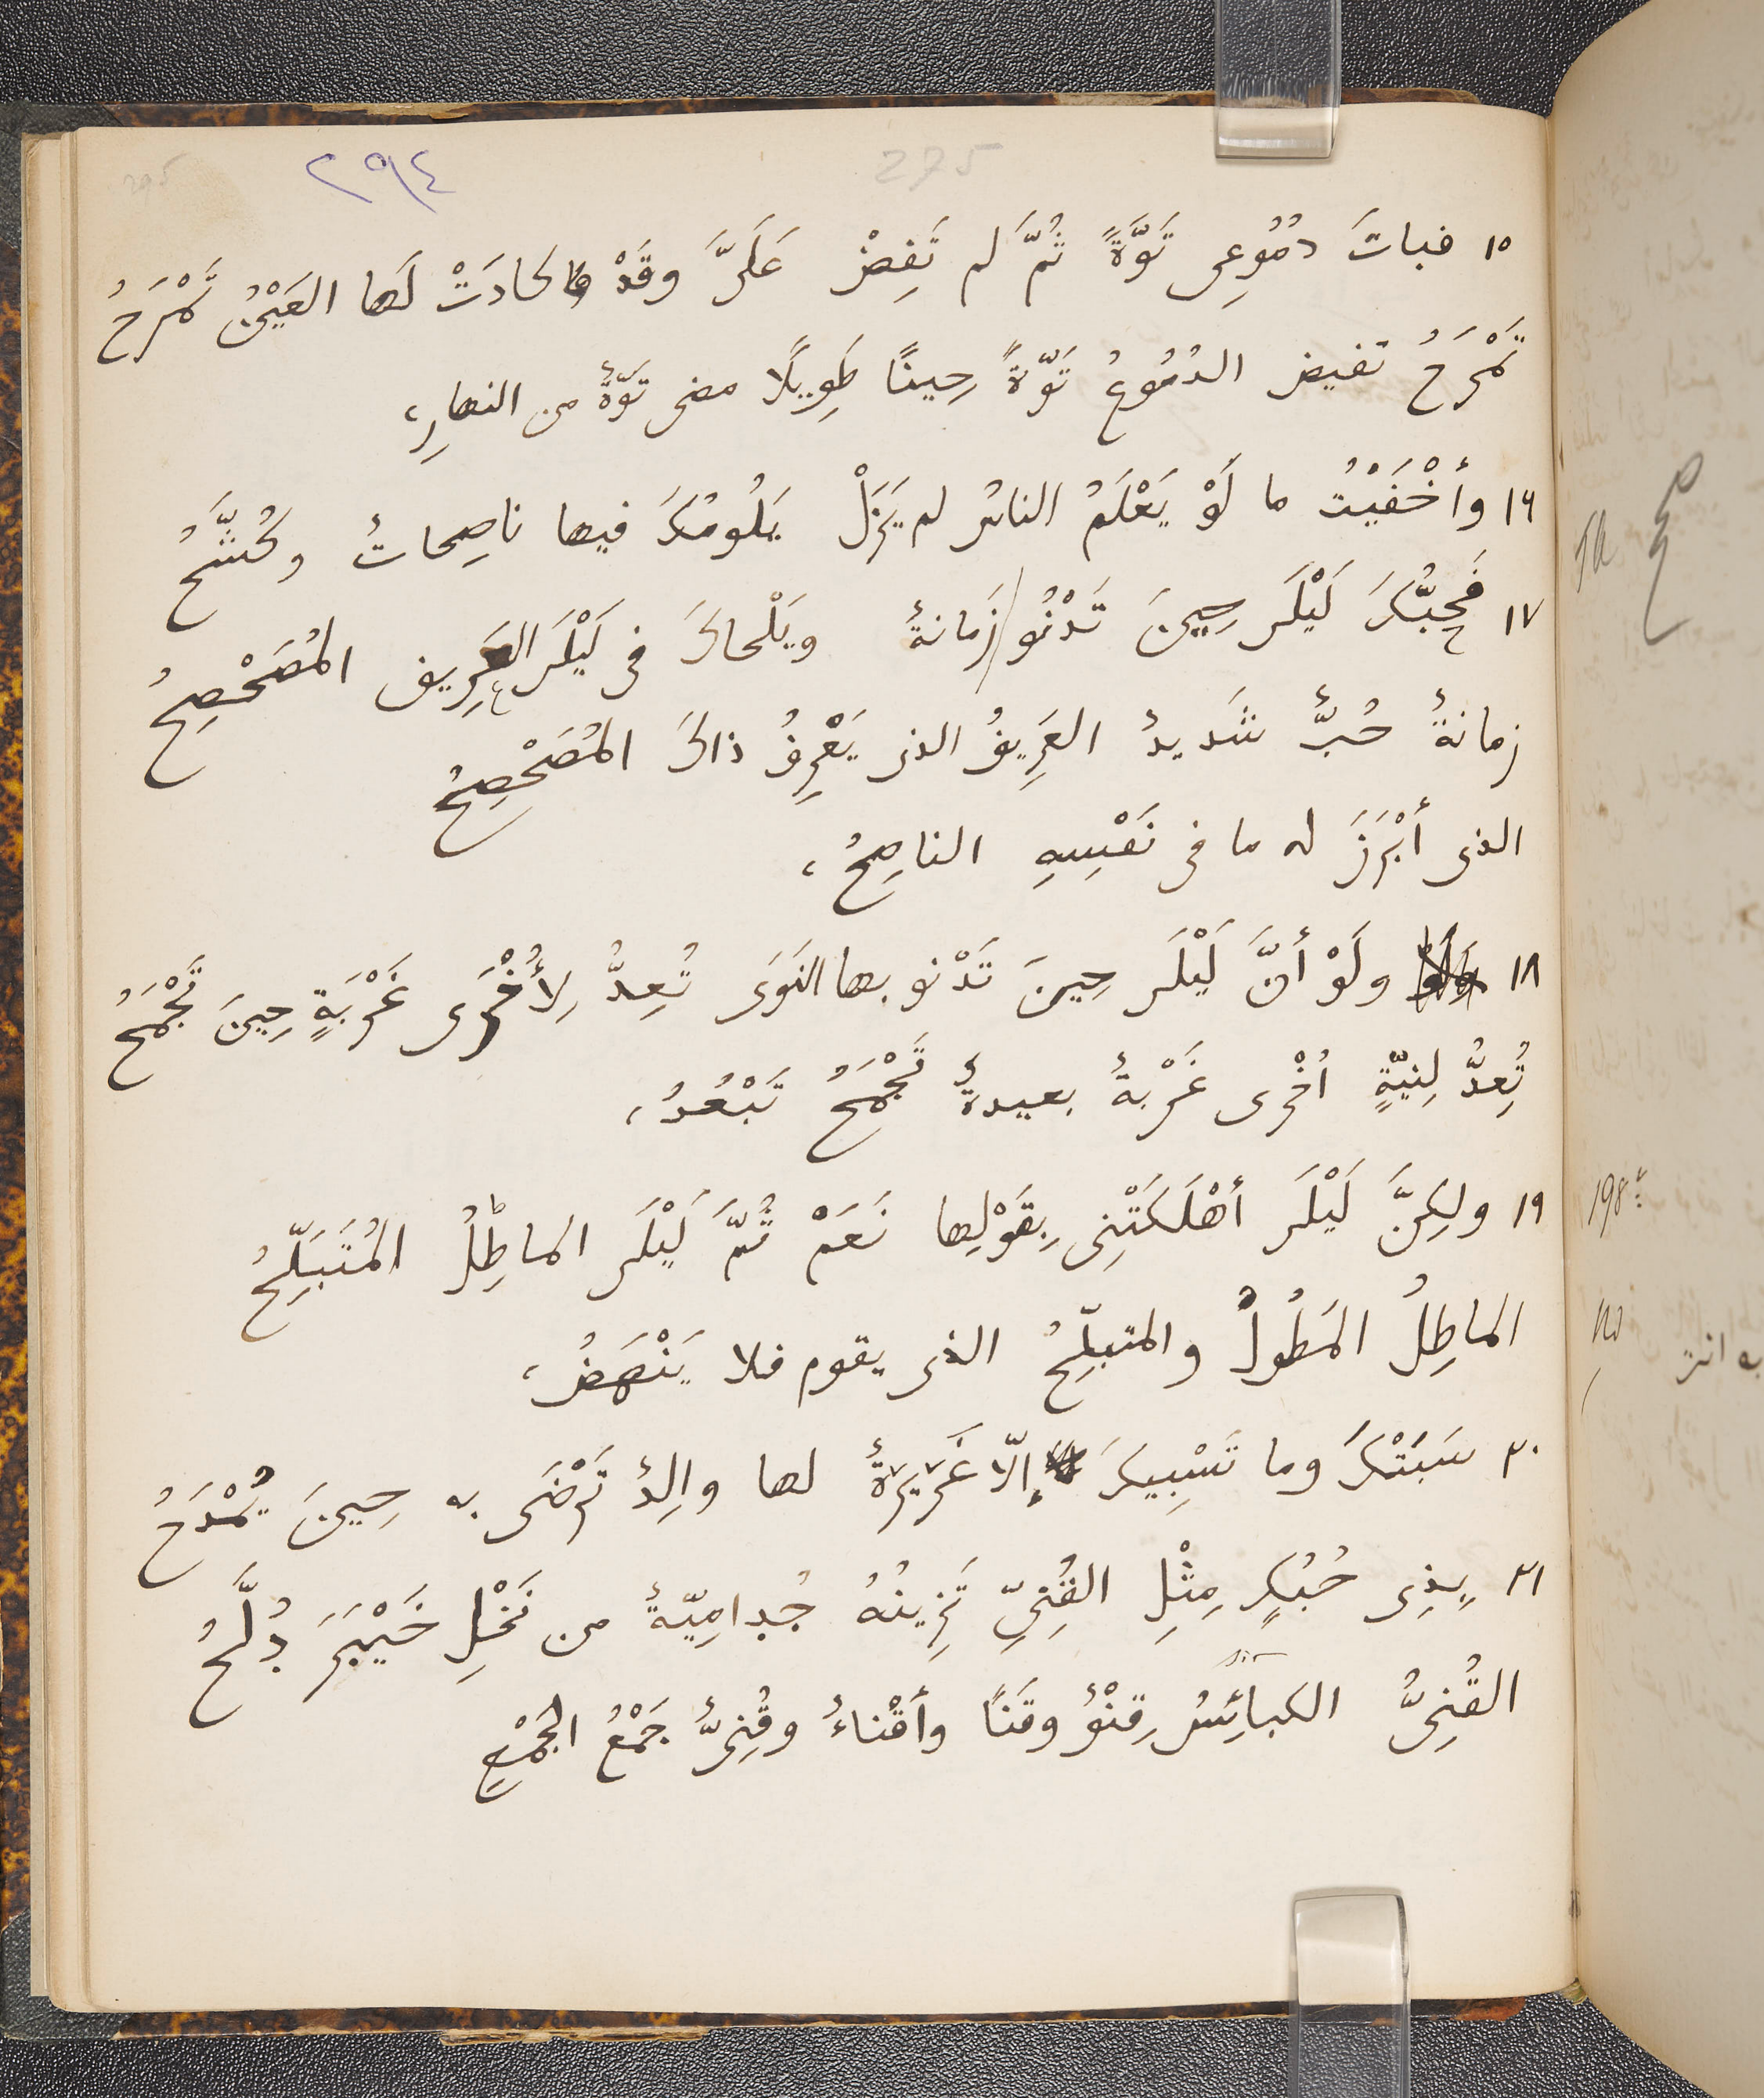 ٢٩٤
275
295
١٥ فباتَ دُمُوعِى تَوَّةً ثُمَّ لم تَفِضْ عَلَىَّ وقَدْ كادَتْ لَها العَيْنُ تَمْرَحُ
تَمْرَحُ تفيض الدُمُوعُ تَوَّةً حِينًا طَوِيلًا مضى تَوَّةٌ من النهارِ،
١٦ وأَخْفَيْتُ ما لَوْ يَعْلَمُ الناسُ لم يَزَلْ يَلُومُكَ فيها ناصِحاتٌ وكُشَّحُ
١٧ فَحُبُّكَ لَيْلَى حِينَ تَدْنُو زَمانةٌ ويَلْحاكَ فى لَيْلَى العَرِيف المُصَحْصِحُ
زمانةٌ حُبٌّ شَديدٌ العَرِيفُ الذى يَعْرِفُ ذاكَ المُصَحْصِحُ
الذى أَبْرَزَ له ما فى نَفْسِهِ الناصِحُ،
١٨ ولَوْ أَنَّ لَيْلَى حِينَ تَدْنو بها النَوَى تُعِدُّ لِأُخْرَى غَرْبَةٍ حِينَ تَجْمَحُ
تُعِدُّ لِنِيّةٍ اُخْرى غَرْبةٌ بعيدةٌ تَجْمَحُ تَبْعُدُ،
١٩ ولكِنَّ لَيْلَى أَهْلَكَتْنِى بِقَوْلِها نَعَمْ ثُمَّ لَيْلَى الماطِلُ المُتَبَلِّحُ
الماطِلُ المَطُولُ والمتبلِّحُ الذى يقوم فلا يَنْهَضُ،
٢٠ سَبَتْكَ وما تَسْبِيكَ إلّا غَرِيَرةٌ لها والِدٌ تَرْضَى به حِينَ يُمْدَحُ
٢١ بِذِى حُبُكٍ مِثْلِ القُنِىِّ تَزِينُهُ جُدامِيّةٌ من نَخْلِ خَيْبَرَ دُلَّحُ
القُنِىُّ الكبائِسُ قِنْوٌ وقَنًا وأَقْناءٌ وقُنِىٌّ جَمْعُ الجَمْعِ